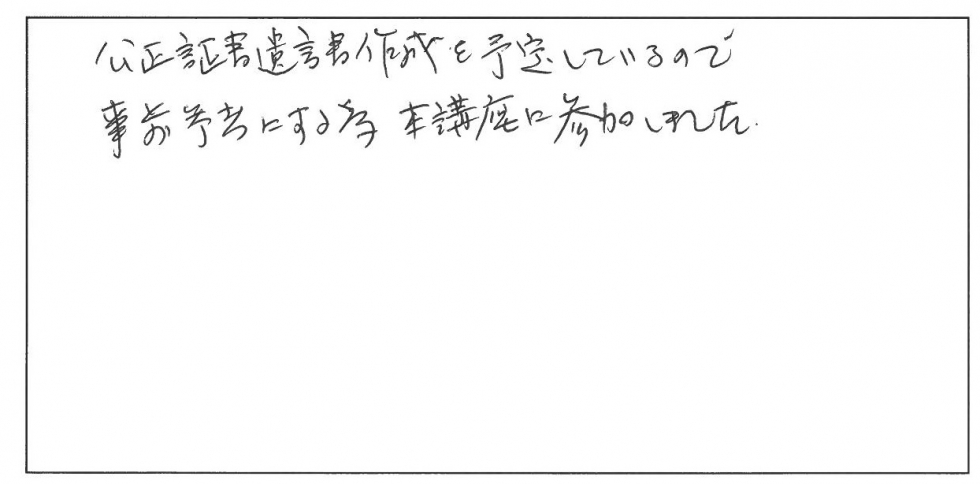 公正証書遺言書作成を予定しているので
事前参考にする為 本講座に参加しました.